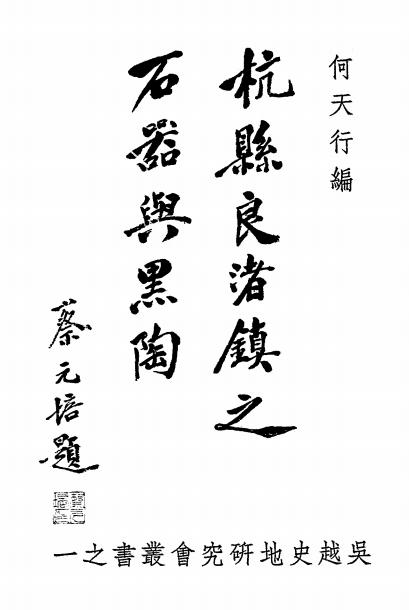 何天行編
杭縣良渚鎮之
石器與黑陶
蔡元培題
吳越史地研究會叢書之一